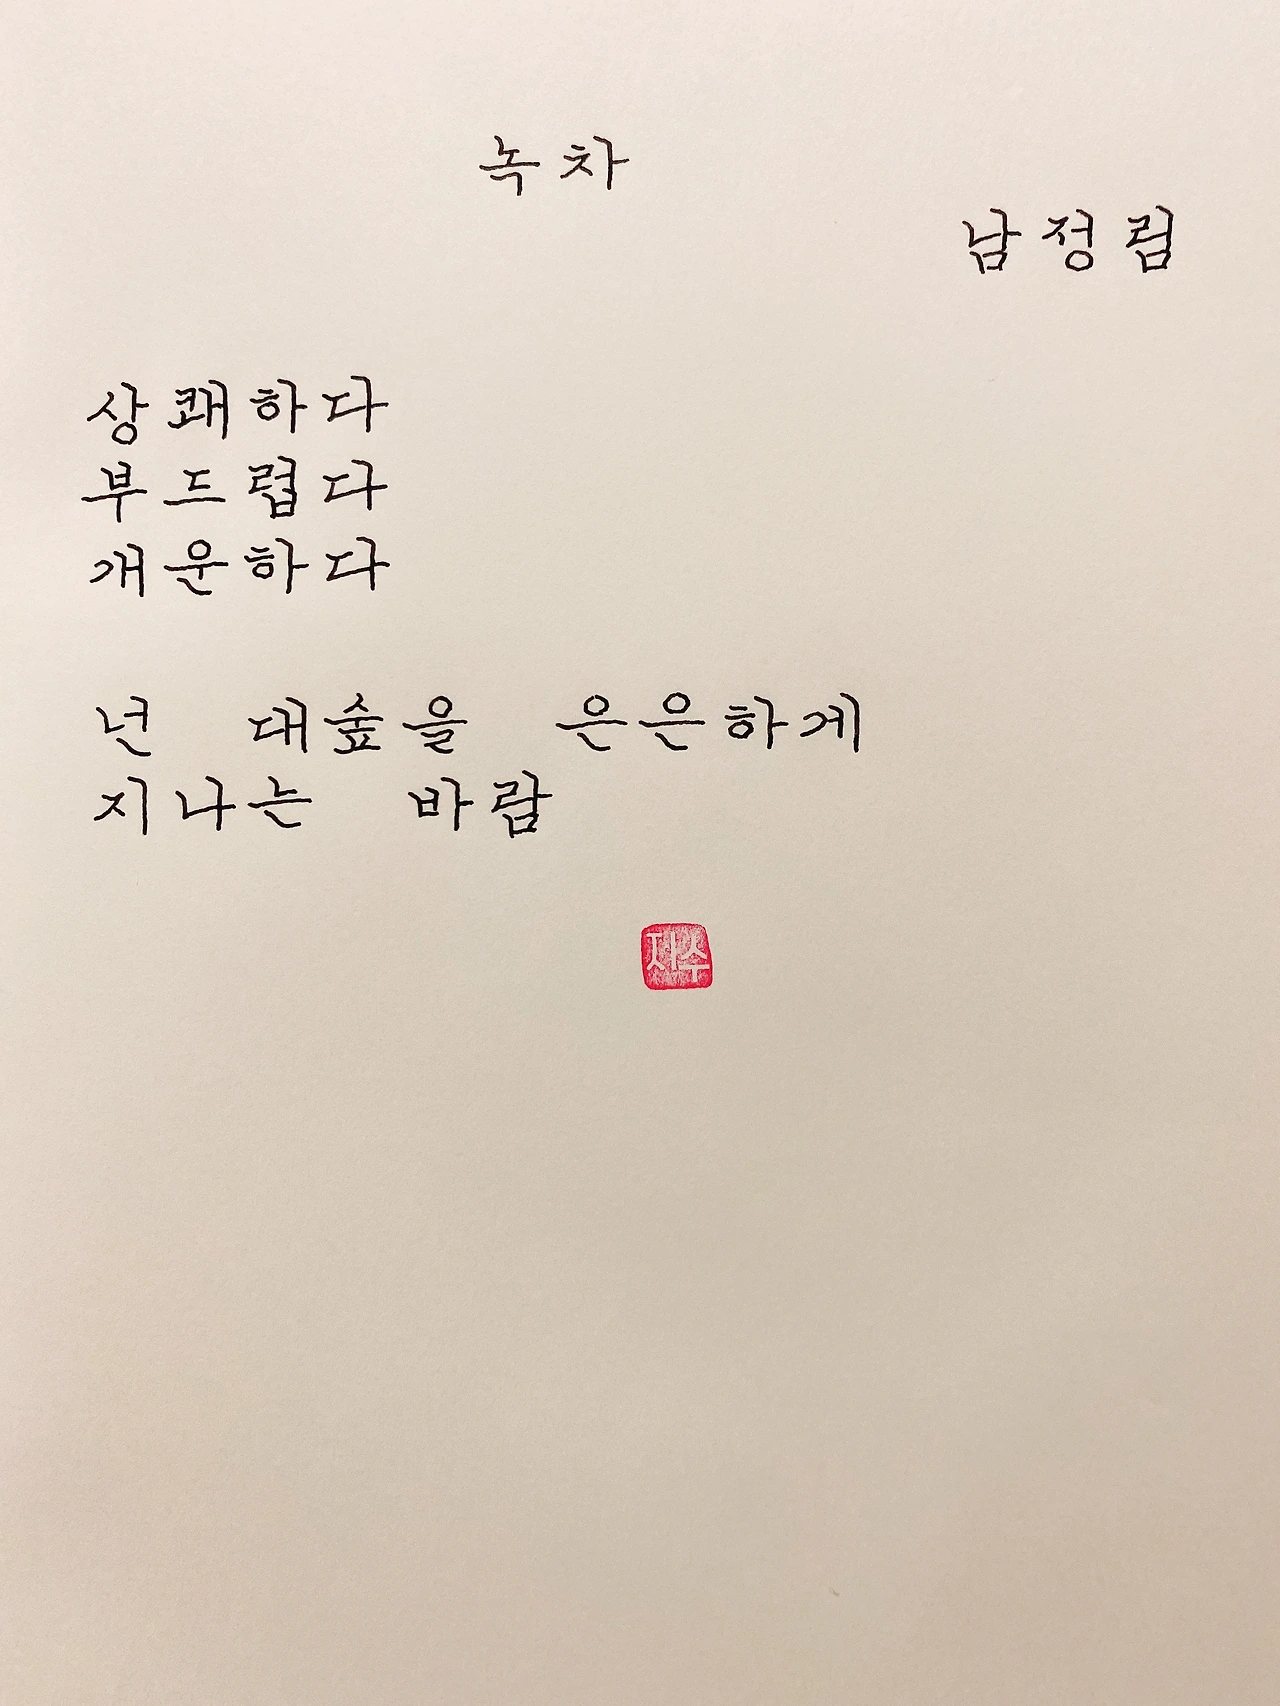 녹차
남정림
상쾌하다
부드럽다
개운하다
넌 대숲을 은은하게
지나는 바람
자수